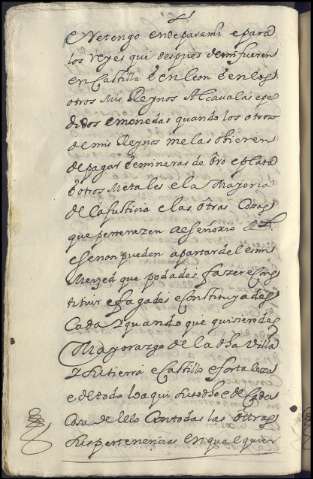 e Retengo ende para mi e para
los Reyes que despues de mi fueren
en Castilla e en leon e en los
otros mis Reynos Alcavalas e pe
didos e monedas quando los otros
de mis Reynos me las obieren
de pagar e mineras de oro e plata
e otros metales e la mayoria
de la Justicia e las otras cosas
que pertenezen a el Señorio Rl
e se non pueden apartar del e mi
Merzed que podades fazer e Ins
tituir e fagades e constituyades
Cada y quando que quisieredes
Mayorazgo de la dha Villa
y su tierra e Castillo e fortaleza
e de todo lo aqui susodho e de Cada
Cosa de ello con todas las otras
sus pertenencias en qualquier